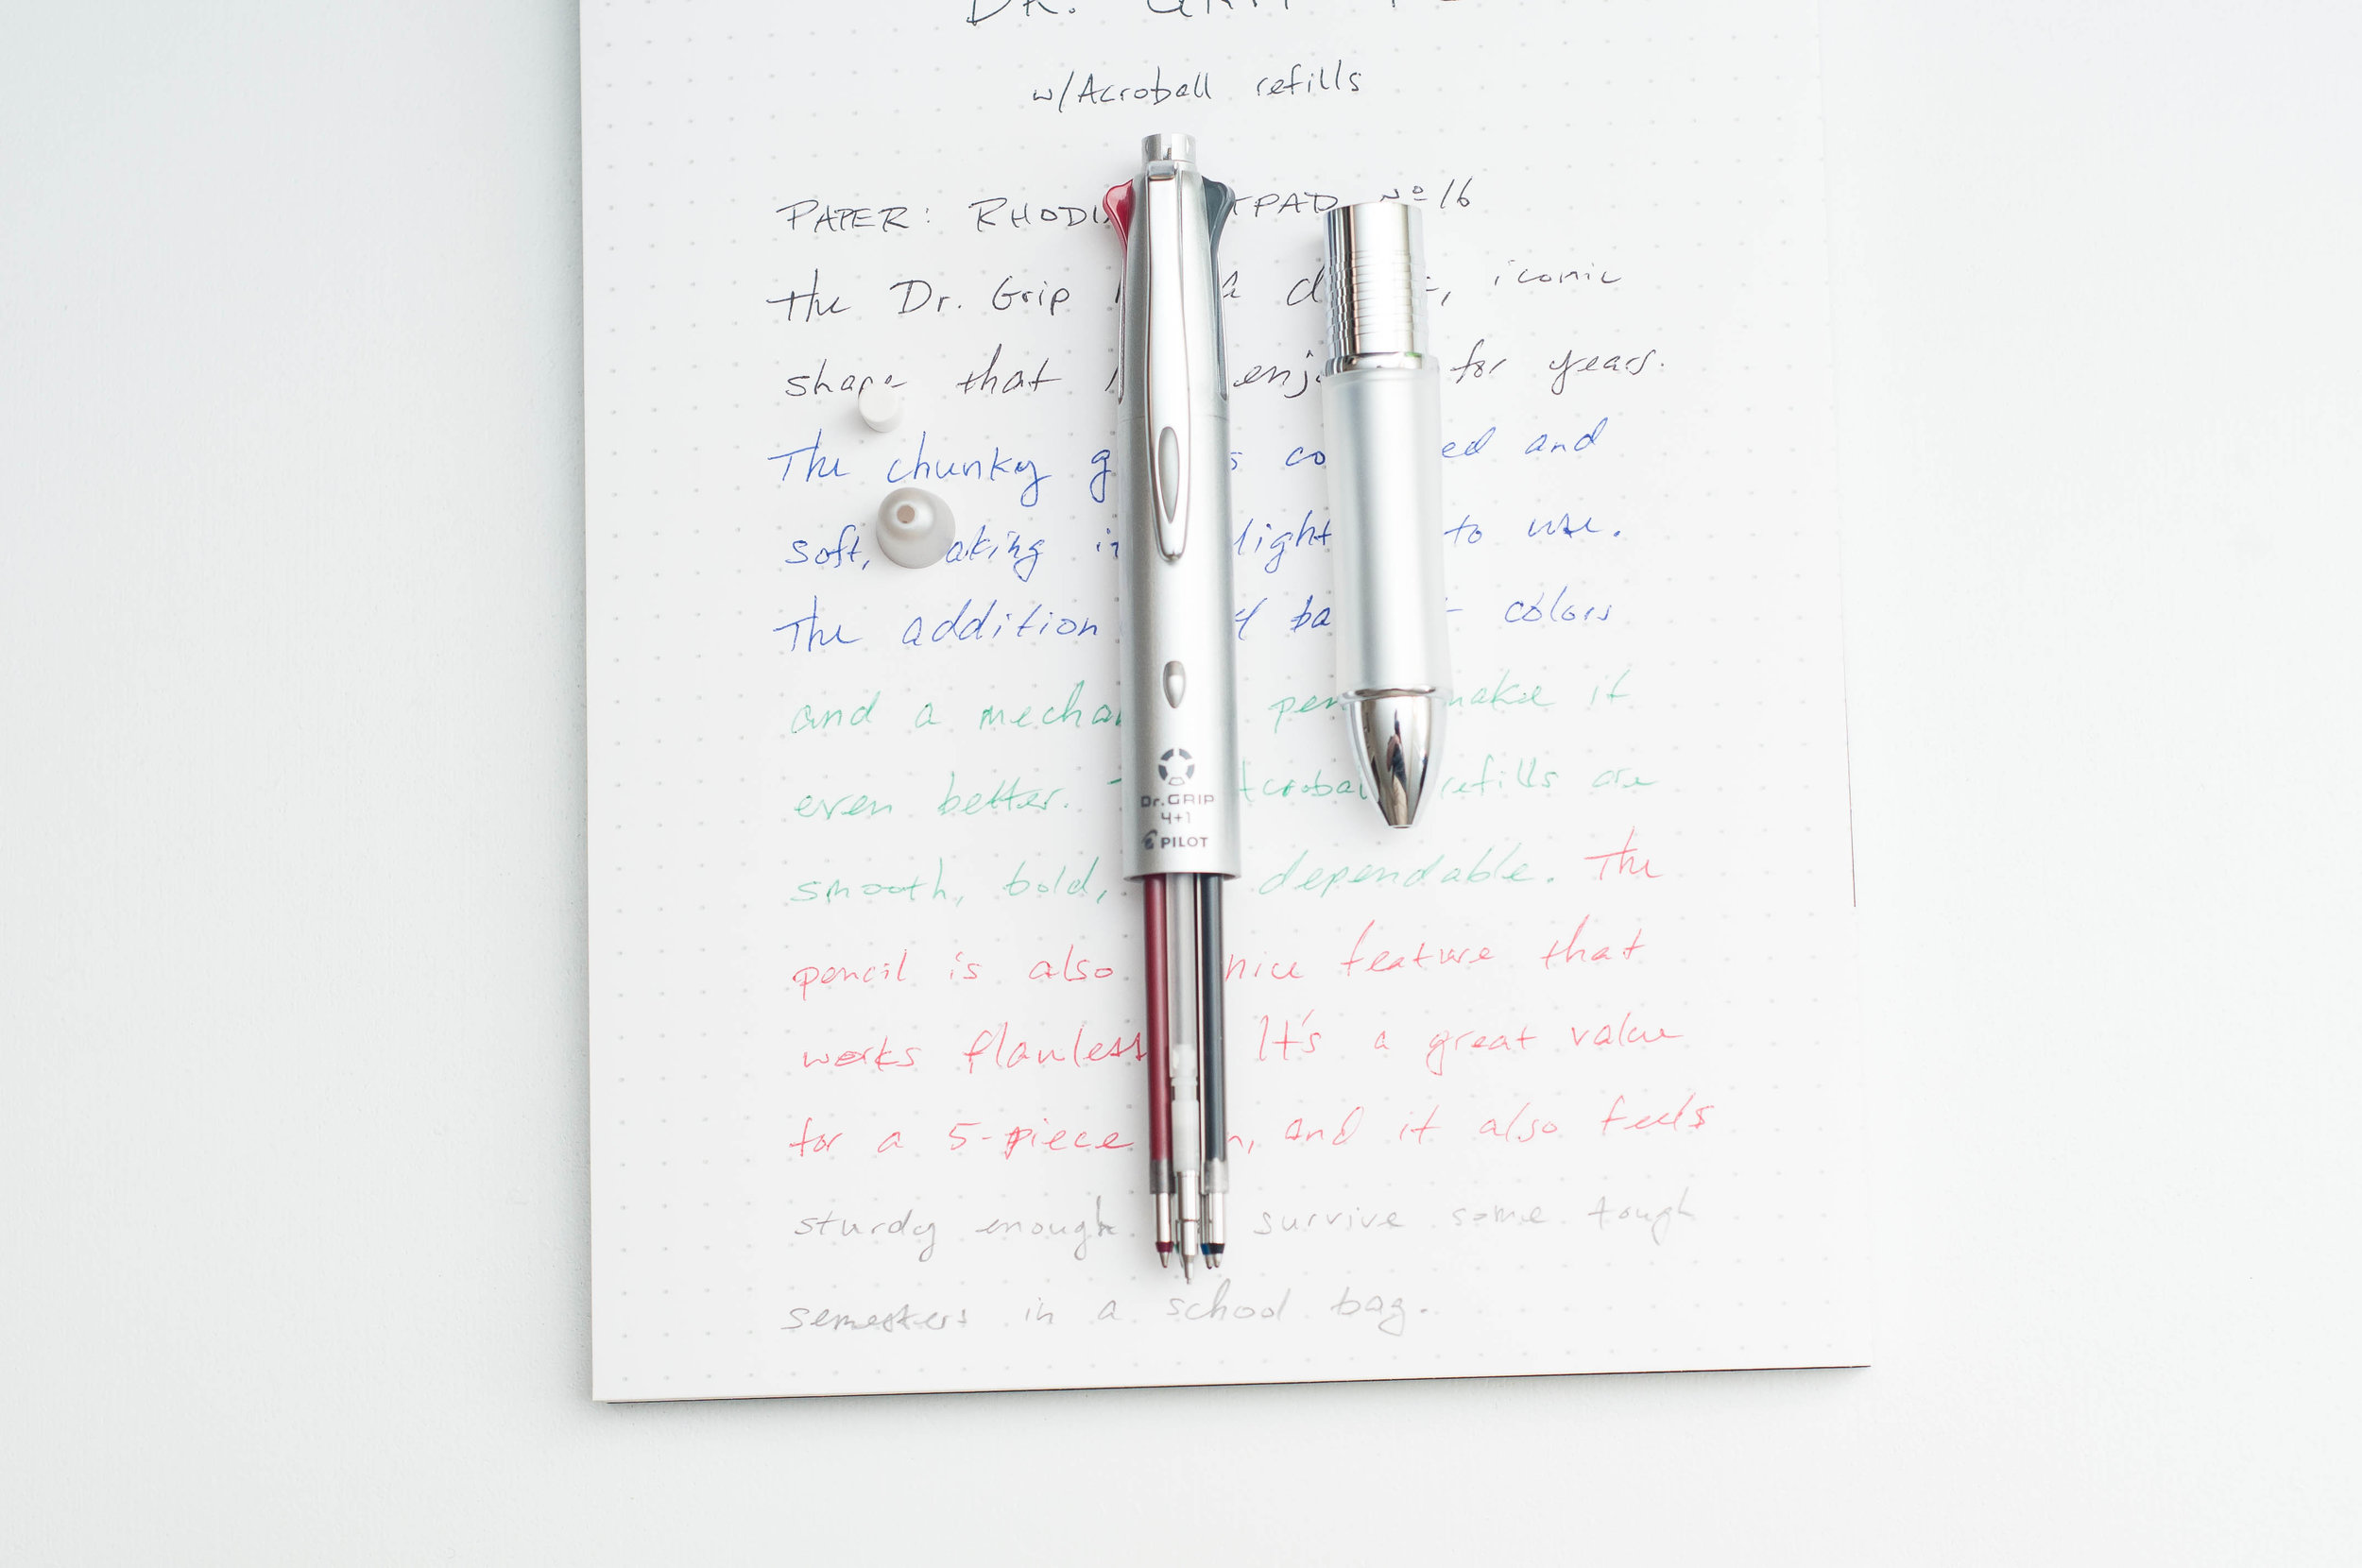 DR. GRIP
w/Acroball refills
PAPER: RHODI TPAD Nº16
the Dr. Grip a d , iconic
shape that enj for years.
The chunky g s co ed and
soft, aking it light to use.
The addition 4 ba colors
and a mechan pen make it
even better. T Acrobal refills are
smooth, bold, dependable. The
pencil is also nice feature that
works flawless It's a great value
for a 5-piece n, and it also feels
sturdy enough survive some tough
semesters in a school bag.
Dr.GRIP
4+1
PILOT